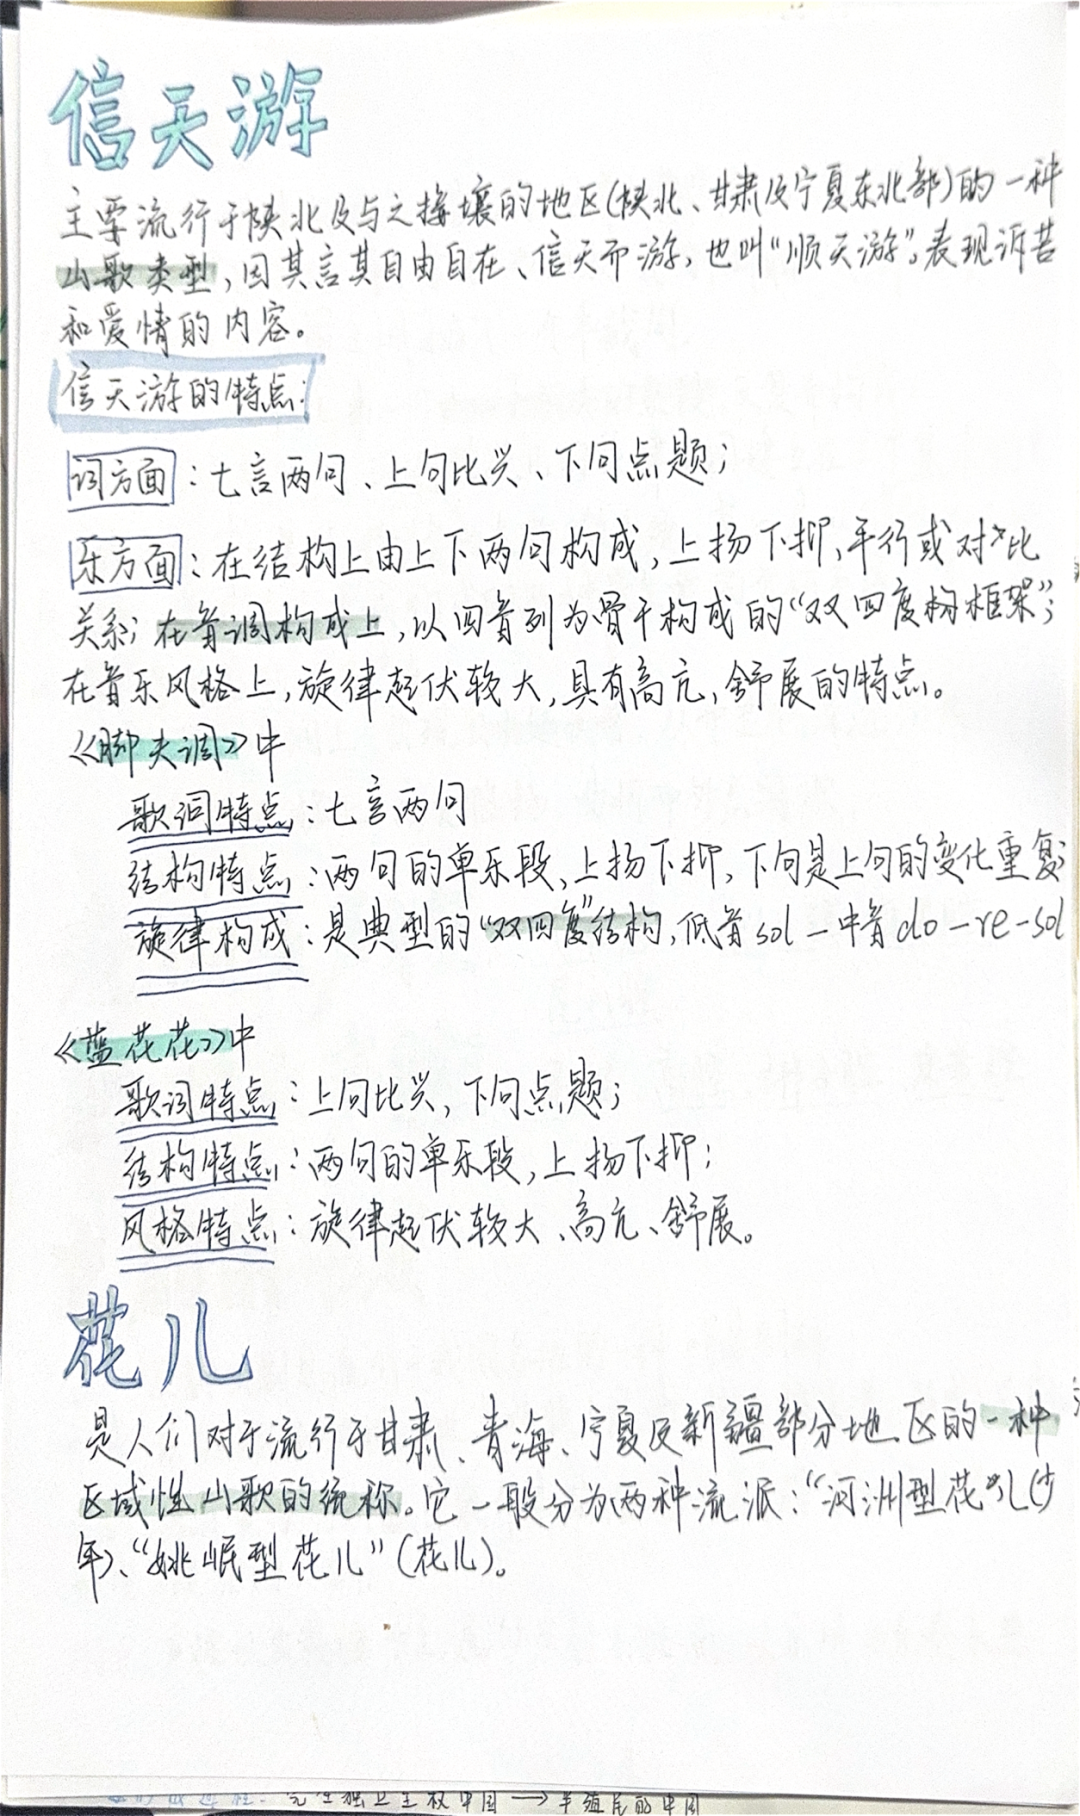 信天游
主要流行于陕北及与之接壤的地区(陕北、甘肃及宁夏东北部)的一种
山歌类型，因其言其自由自在、信天而游，也叫“顺天游”。表现诉苦
和爱情的内容。
信天游的特点：
词方面：七言两句、上句比兴、下句点题；
乐方面：在结构上由上下两句构成，上扬下抑，平行或对比
关系；在音调构成上，以四音列为骨干构成的“双四度构框架”；
在音乐风格上，旋律起伏较大，具有高亢，舒展的特点。
《脚夫调》中
歌词特点：七言两句
结构特点：两句的单乐段，上扬下抑，下句是上句的变化重复；
旋律构成：是典型的“双四度”结构，低音sol－中音do－re－sol
《蓝花花》中
歌词特点：上句比兴，下句点题；
结构特点：两句的单乐段，上扬下抑；
风格特点：旋律起伏较大、高亢、舒展。
花儿
是人们对于流行于甘肃、青海、宁夏及新疆部分地区的一种
区域性山歌的统称。它一般分为两种流派：“河洲型花儿(少
年)、“姚岷型花儿”(花儿)。
完全独立主权中国→半殖民的中国